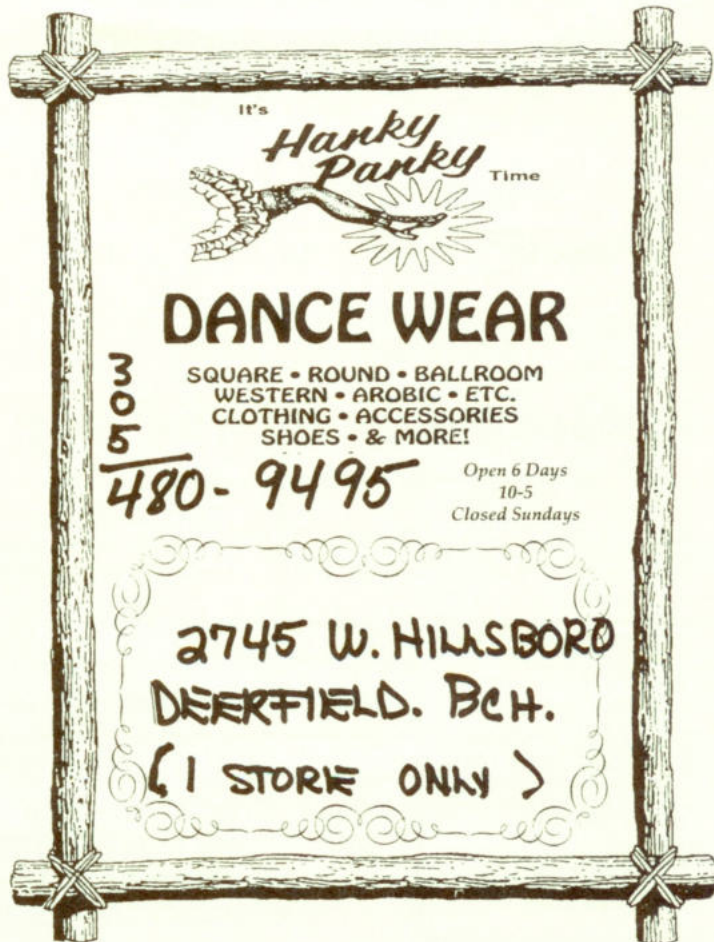 It's
Hanky
Panky
Time
DANCE WEAR
SQUARE • ROUND • BALLROOM
WESTERN • AROBIC • ETC.
CLOTHING • ACCESSORIES
SHOES • & MORE!
305
480-9495
Open 6 Days
10-5
Closed Sundays
2745 W. HILLSBORO
DEERFIELD. BCH.
(1 STORE ONLY)